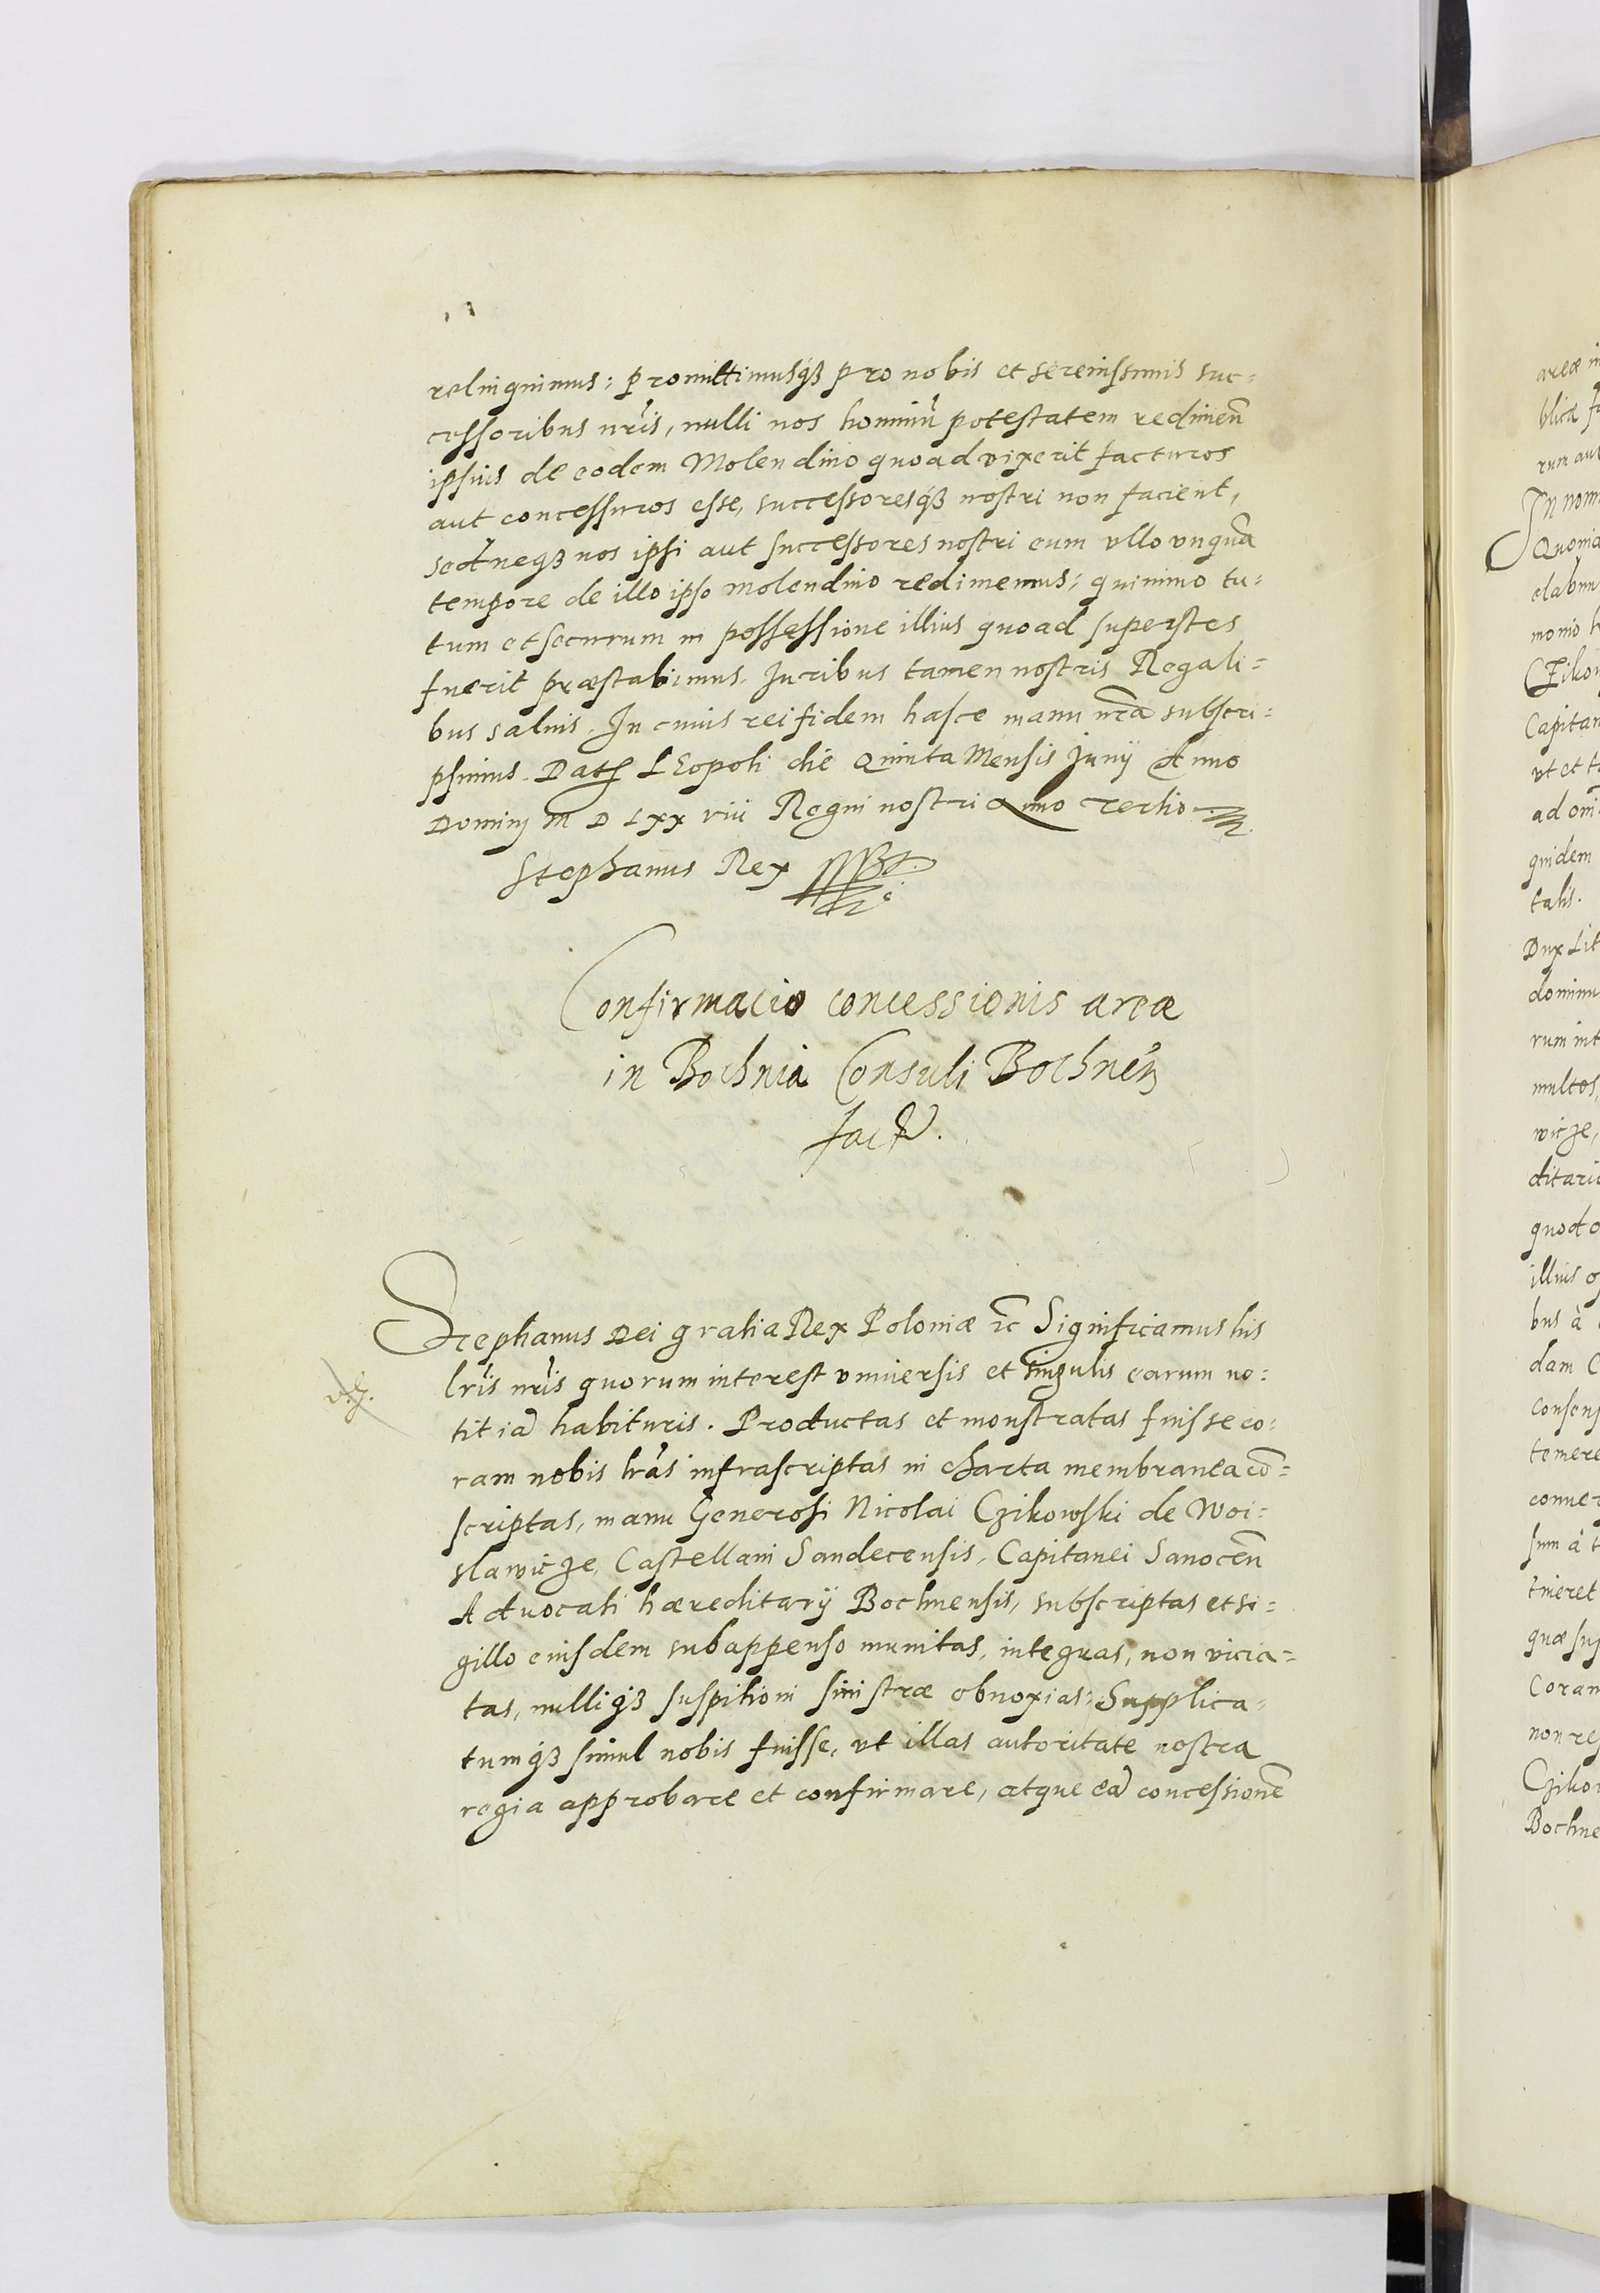 relinquimus: promittimusq́ꝫ pro nobis et sereniſsimis suc=
ceſsoribus nr̃is, nulli nos hominũ poteſtatem redimen̄
ipſius de eodem Molendino quoad vixerit facturos
aut conceſsuros eſse, successoresq́ꝫ noſtri non facient,
sed neqꝫ nos ipſi aut ſucceſsores noſtri eum vllo vnquã
tempore de illo ipſo molendino redimemus: quinimo tu=
tum et ſecurum in poſseſsione illius quoad ſuperſtes
fuerit præſtabimus. Juribus tamen noſtris Regali=
bus saluis. In cuius rei fidem haſce manu nr̃a subſcri=
pſimus. Datꝭ LEopoli die Quinta Menſis Junij Anno
Domini M D LXX viii Regni noſtri Anno Tertio
Stephanus Rex
Confirmacio concessionis areæ
in Bochnia Consuli Bochnen̄
fact
Stephanus Dei gratia Rex Poloniæ ꝛc Significamus his
lr̃is nr̃is quorum intereſt vniuerſis et ſingulis earum no=
titiã habituris. Productas et monſtratas fuiſse co=
ram nobis lr̃as infraſcriptas in charta membranea cõ=
ſcriptas, manu Generoſi Nicolai Czikowſki de Woi=
slawicze, Caſtellani Sandecenſis, Capitanei Sanocen̄
Aduocati hæreditarij Bochnenſis, subſcriptas et si=
gillo eiuſdem subappenso munitas, integras, non vicia=
tas, nulliq́ꝫ ſuſpitioni ſiniſtræ obnoxias: Supplica=
tumq́ꝫ ſimul nobis fuiſse, vt illas autoritate noſtra
regia approbare et confirmare, atque eã conceſsionẽ
areæ
blica
rum
In
Quonia
monio
Czikow
Capitan
vt et
ad om̃
quidem
talis.
Dux Lit
dominu
rum int
multos,
wicze,
ditari
quod
illius
bus à
dam
conſenſ
temere
ſum à
tueret
quæ ſup
Coram
non reſ
Czikow
Bochne